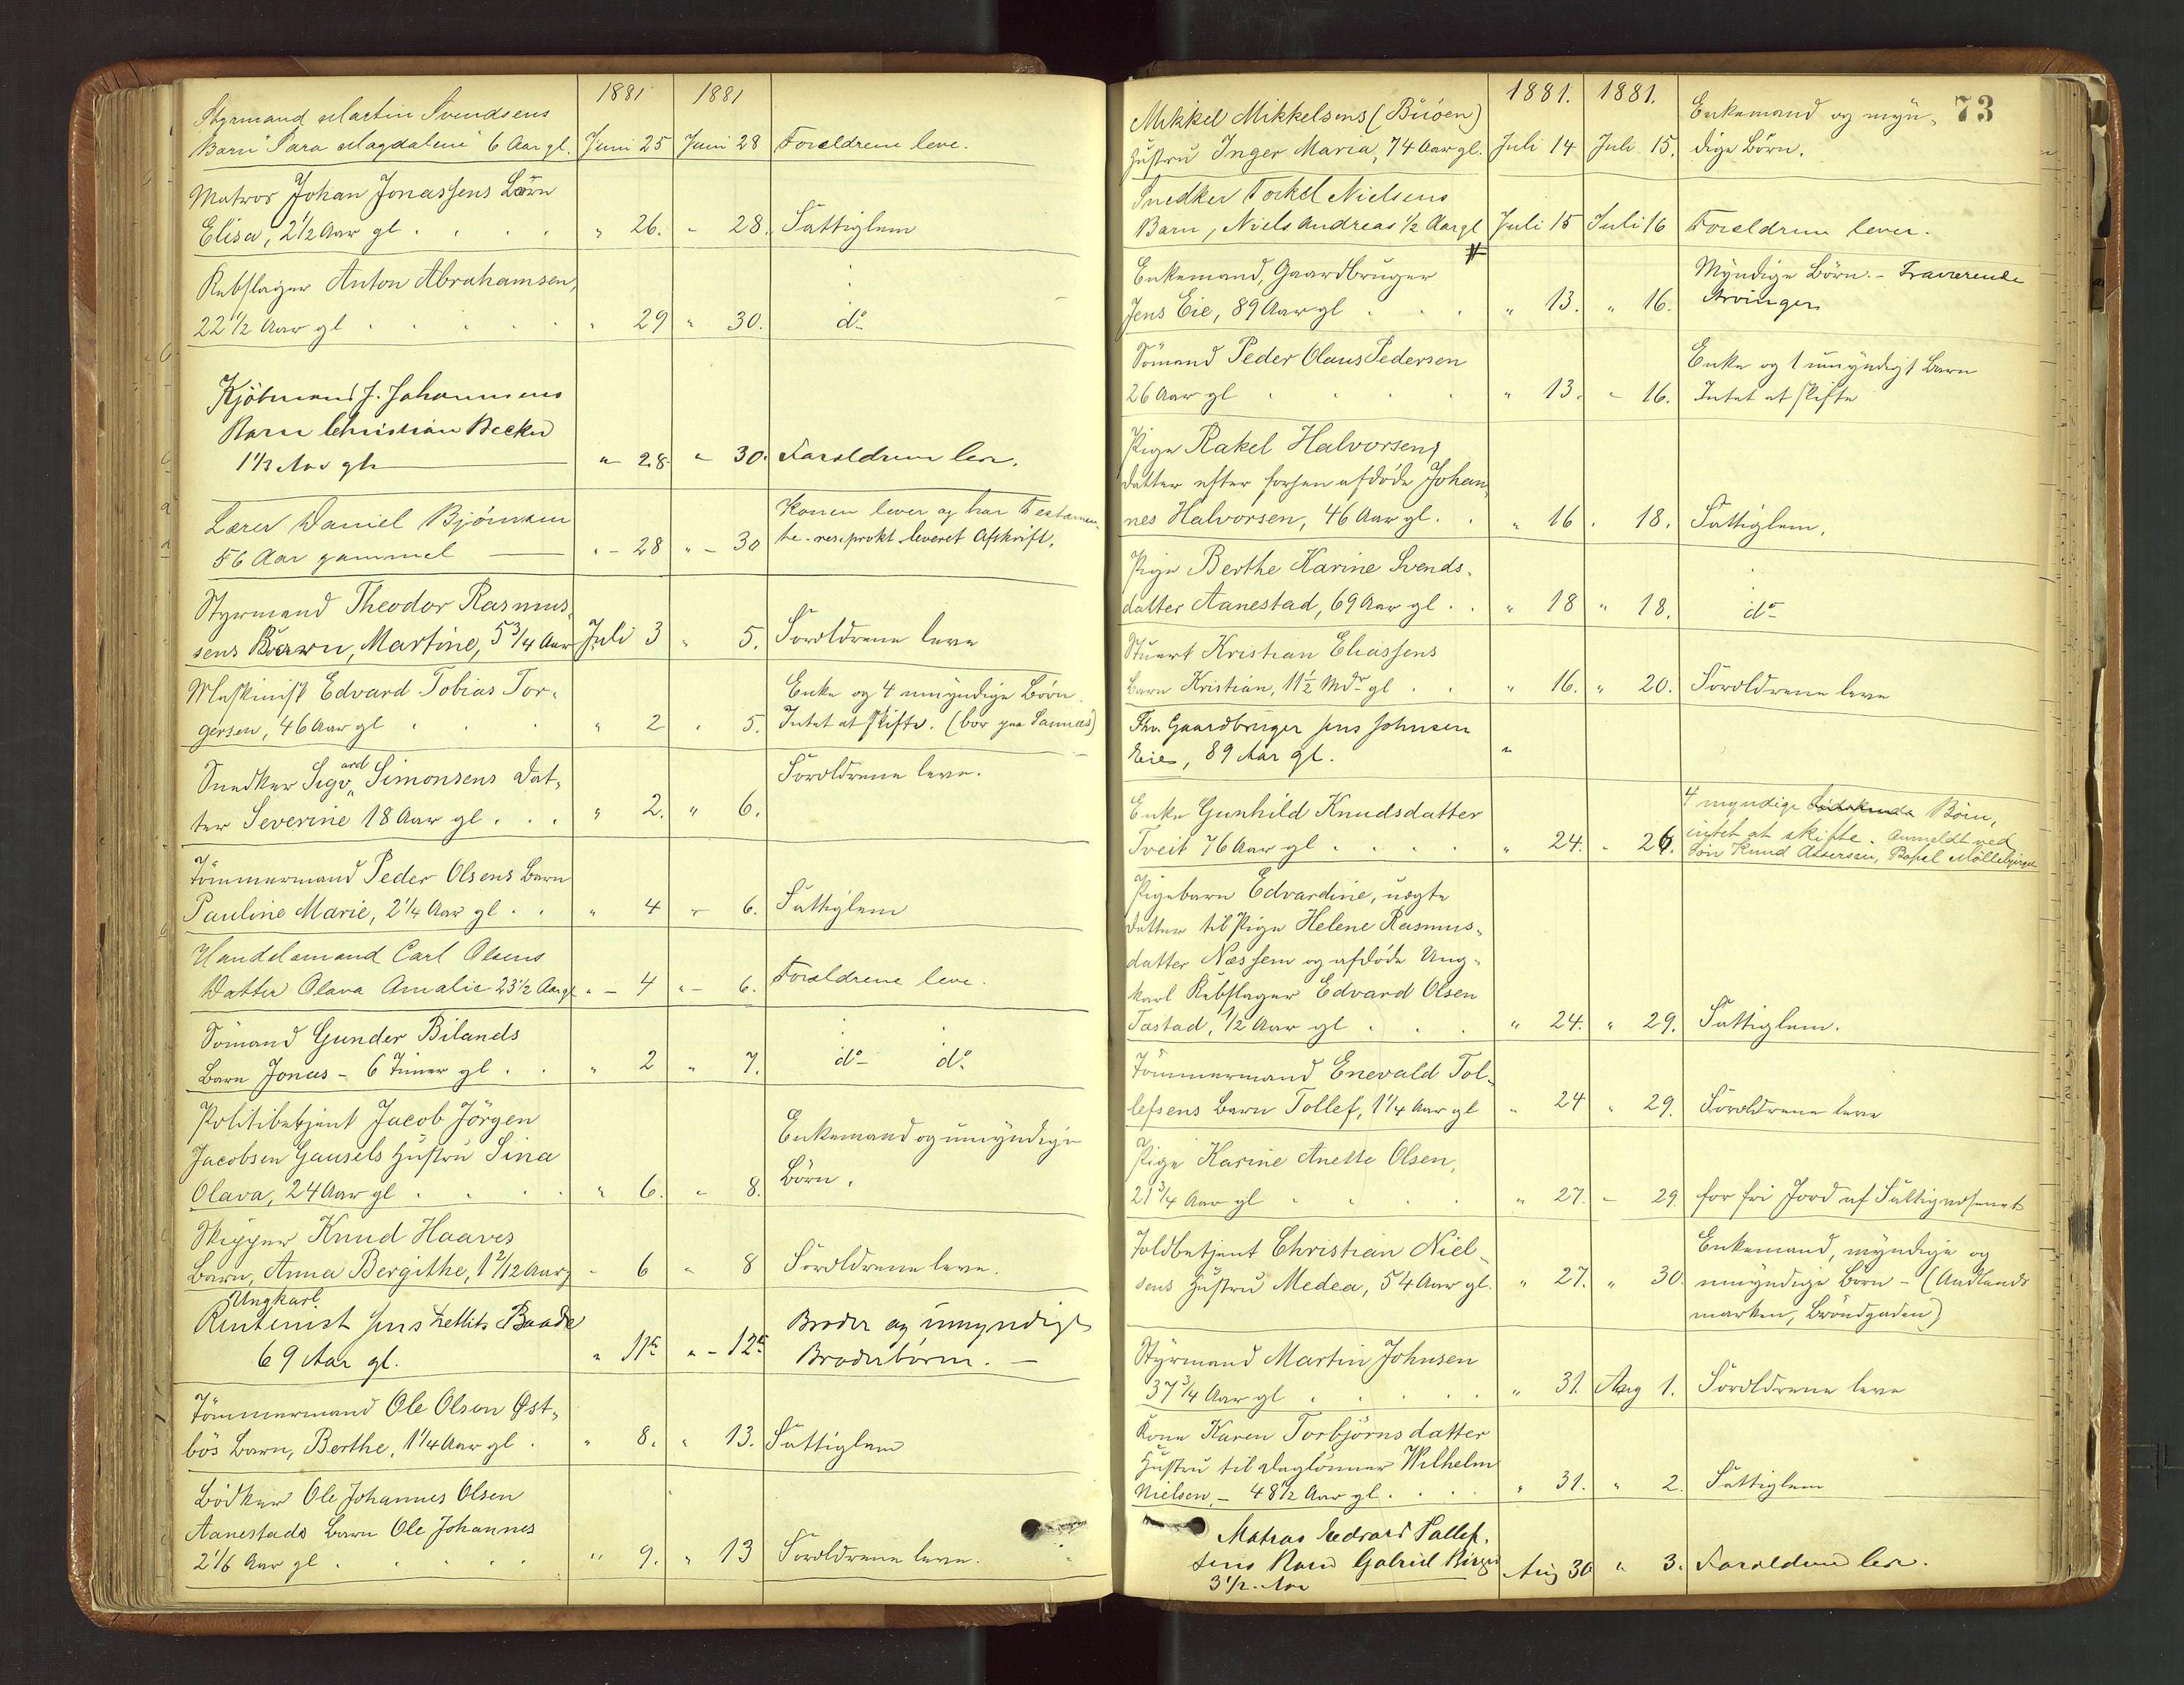 1881 1881
Styrmand Martin Svendsens
Barn Sara Magdalene 6 Aar gl. Juni 25 Juni 28 Forældrene leve.
Matros Johan Jonassens Børn
Elisa, 2½ Aar gl . . . . " 26. " 28. Fattiglem
Rebslager Anton Abrahamsen,
22½ Aar gl . . . . . " 29 " 30. do
Kjøbmand J. Johannesens
Barn Christian Becker
1⅓ Aar gl. " 28 " 30. Forældrene lever.
Lærer Daniel Bjørnsen
56 Aar gammel " – 28 " – 30
Konen lever og har Testamen-
te. leveret Afskrift.
Styrmand Theodor Rasmus-
sens Barn, Martine, 5¾ Aar Juli 3 " 5. Forældrene leve
Maskinist Edvard Tobias Tor-
gersen, 46 Aar gl . . . " 2 " 5.
Enke og 4 umyndige Børn
Intet at skifte. (bor paa Sannæs)
Snedker Sigvard Simonsens Dat-
ter Severine 18 Aar gl . . . " 2. " 6. Forældrene leve.
Tømmermand Peder Olsens Barn
Pauline Marie, 2¼ Aar gl . . " 4 " 6. Fattiglem
Handelsmand Carl Olsens
Datter Olava Amalie 23½ Aar gl " – 4 " – 6. Forældrene leve.
Sømand Gunder Bilands
Barn Jonas – 6 Timer gl . . " 2 " 7. do do
Politibetjent Jacob Jørgen
Jacobsen Gausels Hustru Sina
Olava, 24 Aar gl . . . . " 6. " 8.
Enkemand og umyndige
Børn.
Skipper Knud Haaves
Barn, Anna Bergithe, 1 2/12 Aar g " 6 " 8 Forældrene leve.
Ungkarl.
Rentenist Jens Zetlitz Baade
69 Aar gl. " 11te " – 12te
Broder og umyndige
Broderbørn. –
Tømmermand Ole Olsen Øst-
bøs Barn, Berthe, 1¼ Aar gl . " 8. " 13. Fattiglem
Bødker Ole Johannes Olsen
Aanestads Barn Ole Johannes
2⅙ Aar gl . . . . . " 9. " 13 Forældrene leve.
73
1881. 1881.
Mikkel Mikkelsens (Buøen)
Hustru Inger Maria, 74 Aar gl. Juli 14 Juli 15.
Enkemand og myn-
dige Børn.
Snedker Torkel Nielsens
Barn, Niels Andreas ½ Aar gl Juli 15 Juli 16 Forældrene lever.
Enkemand, Gaardbruger #
Jens Eie, 89 Aar gl . . . " 13. " 16.
Myndige Børn. – Fraværende
Arvinger
Sømand Peder Olaus Pedersen
26 Aar gl . . . . " 13. " 16.
Enke og 1 umyndigt Barn
Intet at skifte
Pige Rakel Halvorsen,
datter efter forhen afdøde Johan-
nes Halvorsen, 46 Aar gl . . " 16 " 18. Fattiglem.
Pige Berthe Karine Svends-
datter Aanestad, 69 Aar gl . . " 18 " 18. do
Stuert Kristian Eliassens
Barn Kristian, 11½ Mdr gl . . " 16. " 20. Forældrene leve
Fhv. Gaardbruger Jens Johnsen
Eie, 89 Aar gl. "
Enke Gunhild Knudsdatter
Tveit 76 Aar gl . . . . " 24. " 26.
4 myndige Børn,
intet at skifte. Anmeldt ved
Søn Knud Assersen, Møllebjerget
Pigebarn Edvardine, uægte
datter til Pige Helene Rasmus-
datter Næssem og afdøde Ung-
karl Rebslager Edvard Olsen
Tastad, ½ Aar gl . . . " 24. " 29. Fattiglem.
Tømmermand Enevald Tol-
lefsens Barn Tollef, 1¼ Aar gl " 24 " 29. Forældrene leve
Pige Karine Anette Olsen,
21¾ Aar gl . . . . " 27. " 29. for fri Jord af Fattigvæsenet
Toldbetjent Christian Niel-
sens Hustru Medea, 54 Aar gl. " 27. " 30.
Enkemand, myndige og
umyndige Børn – (Audlands
marken, Brøndgaden)
Styrmand Martin Johnsen
37¾ Aar gl . . . . . " 31. Aug 1. Forældrene leve
Kone Karen Torbjørnsdatter
Hustru til Dagløinner Wilhelm
Nielsen, – 48½ Aar gl . . . . " 31. " 2. Fattiglem
Matros Edvard Tollef-
sens Barn Gabriel Birger
3½ Aar Aug 30 " 3. Forældrene lever.